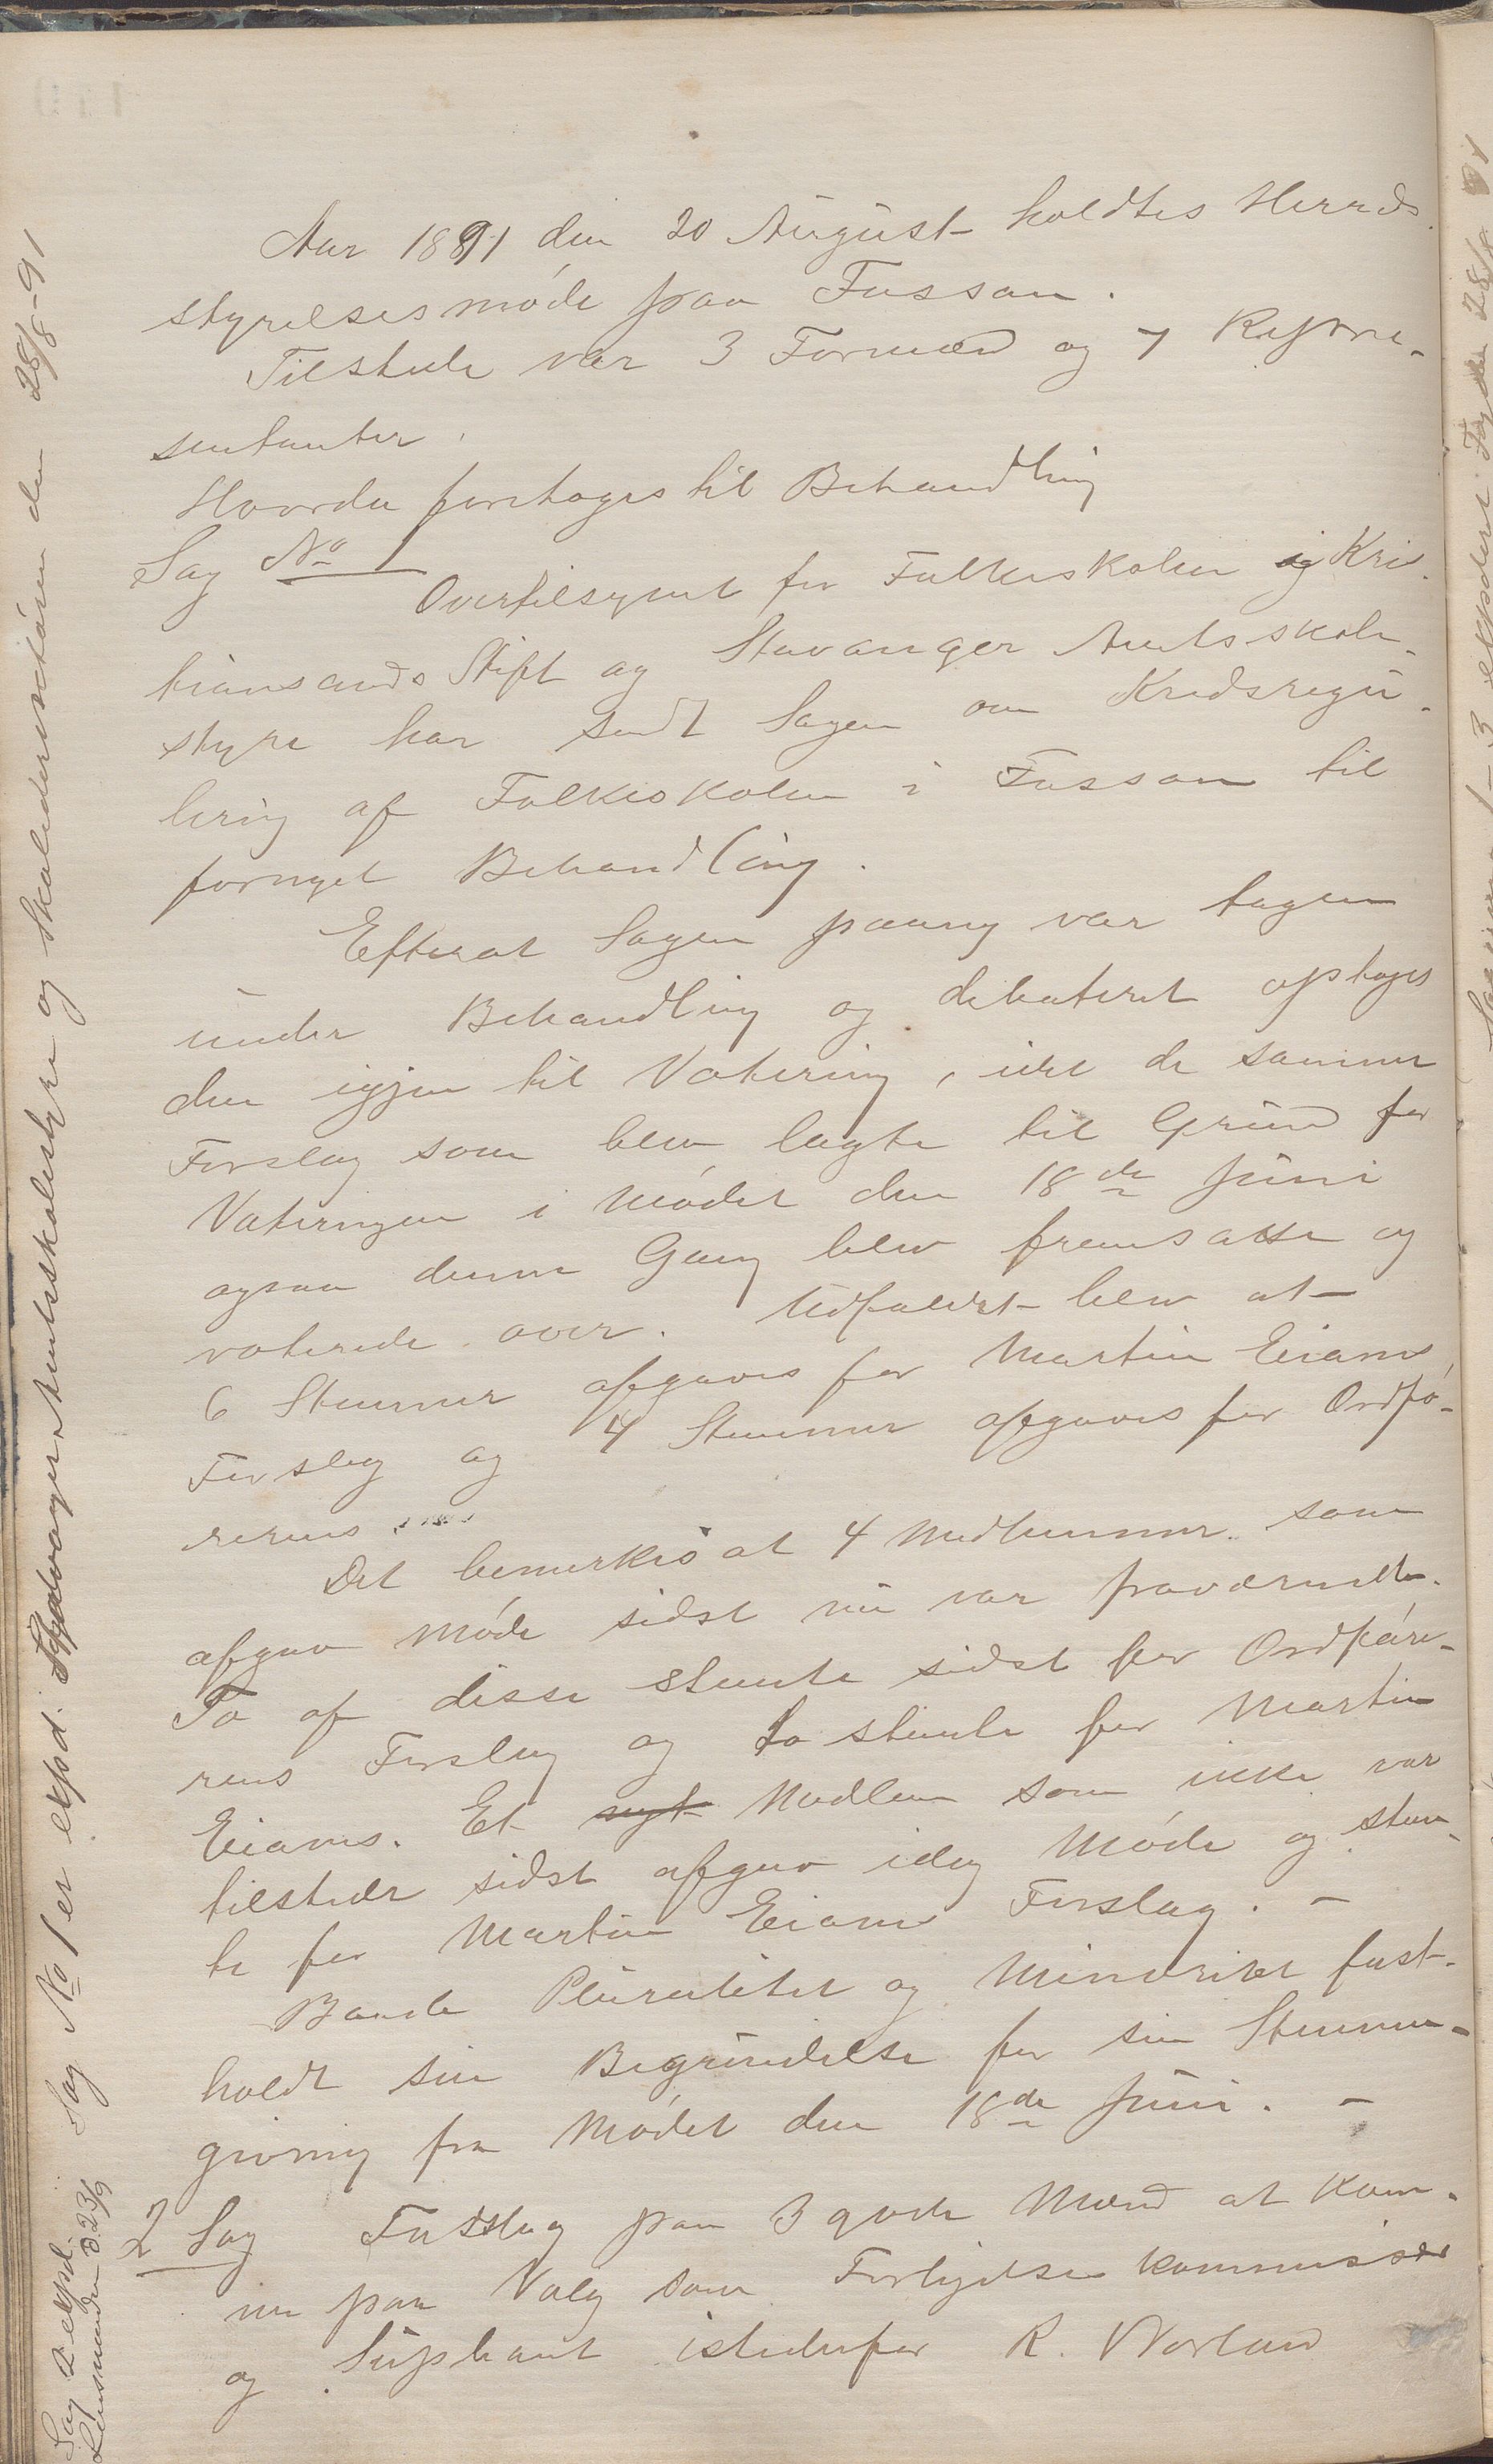 Aar 1891 den 20 August holdtes Herreds
styrelsesmøde paa Fossan.
Tilstede var 3 Formænd og 7 Repræ-
sentanter.
Hvorda foretoges til Behandling
Sag No 1
Overtilsynet for Folkeskolen i Kris
tiansands Stift og Stavanger Amtsskole-
styre har sendt Sagen om Kredsregu-
lering af Folkeskolen i Fossan til
fornyet Behandling.
Efterat Sagen paany var tagen
under Behandling og debateret optoges
den igjen til Votering, idet de samme
Forslag som blev lagte til Grund for
Voteringen i Mødet den 18de Juni
ogsaa denne Gang blev fremsatte og
voterede over. Udfaldet blev at
6 Stemmer afgaves for Martin Eianes
Forslag og 4 Stemmer afgaves for Ordfø-
rerens
Det bemerkes at 4 Medlemmer som
afgav Møde sidst nu var fraværende.
To af disse stemte sidst for Ordføre-
rens Forslag og to stemte for Martin
Eianes. Et nyt Medlem som ikke var
tilstede sidst afgav idag Møde og stem-
te for Martin Eianes Forslag. -
Baade Pluralitet og Minoritet fast-
holdt sin Begrundelse for sin Stemme-
givning fra Mødet den 18de Juni. -
2 Sag Forslag paa 3 gode Mænd at kom-
me paa Valg som Forligelseskommissær
og Supleant istedenfor R. Norland
Sag No 1 er expd. Stavanger Amtsskolestyre og Skoledirektøren den 28/8-91
Sag 2 expd.
Lensmanden d. 23/9
1-3 expederet Fogden 28/8 91